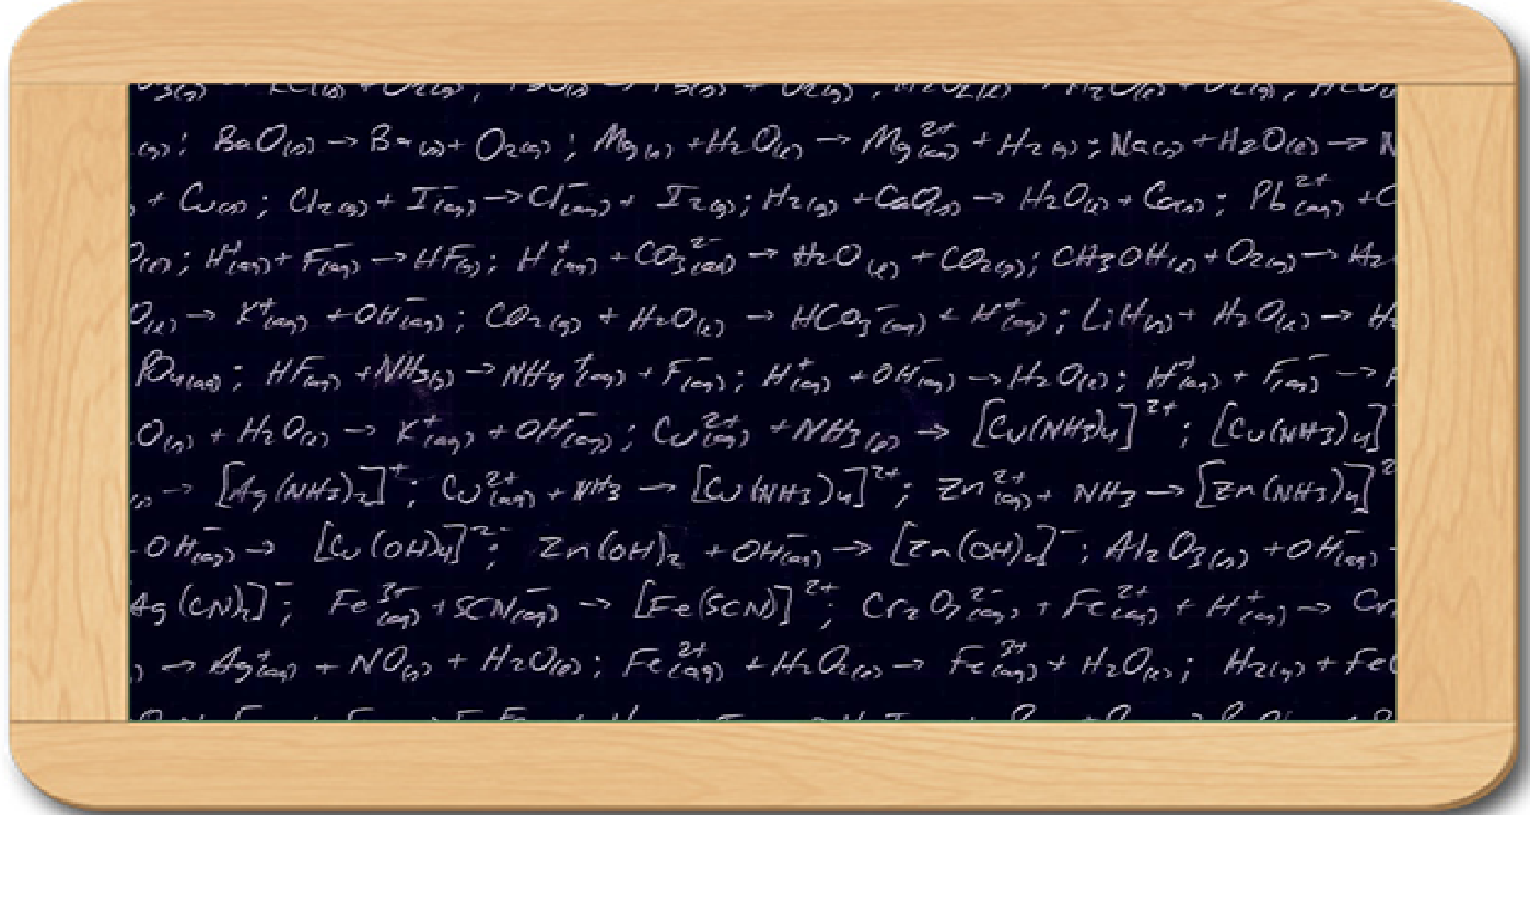 BaO(s) → Ba(s) + O₂(g) ; Mg(s) + H₂O(l) → Mg²⁺(aq) + H₂(g) ; Na(s) + H₂O(l) → N
+ Cu(s) ; Cl₂(g) + I⁻(aq) → Cl⁻(aq) + I₂(g) ; H₂(g) + CaO(s) → H₂O(l) + Ca(s) ; Pb²⁺(aq) + C
H⁺(aq) + F⁻(aq) → HF(g) ; H⁺(aq) + CO₃²⁻(aq) → H₂O(l) + CO₂(g) ; CH3OH(l) + O₂(g) → H₂
O(l) → K⁺(aq) + OH⁻(aq) ; CO₂(g) + H₂O(l) → HCO₃⁻(aq) + H⁺(aq) ; LiH(s) + H₂O(l) → H₂
PO₄(aq) ; HF(aq) + NH₃(g) → NH₄⁺(aq) + F⁻(aq) ; H⁺(aq) + OH⁻(aq) → H₂O(l) ; H⁺(aq) + F⁻(aq) →
O(s) + H₂O(l) → K⁺(aq) + OH⁻(aq) ; Cu²⁺(aq) + NH₃(g) → [Cu(NH₃)₄]²⁺ ; [Cu(NH₃)₄]
→ [Ag(NH₃)₂]⁺ ; Cu²⁺(aq) + NH₃ → [Cu(NH₃)₄]²⁺ ; Zn²⁺(aq) + NH₃ → [Zn(NH₃)₄]²
OH⁻(aq) → [Cu(OH)₄]²⁻ ; Zn(OH)₂ + OH⁻(aq) → [Zn(OH)₄]⁻ ; Al₂O₃(s) + OH⁻(aq)
Ag(CN)₂]⁻ ; Fe³⁺(aq) + SCN⁻(aq) → [Fe(SCN)]²⁺ ; Cr₂O₇²⁻(aq) + Fe²⁺(aq) + H⁺(aq) → Cr
→ Ag⁺(aq) + NO(g) + H₂O(l) ; Fe²⁺(aq) + H₂O₂(l) → Fe³⁺(aq) + H₂O(l) ; H₂(g) + Fe